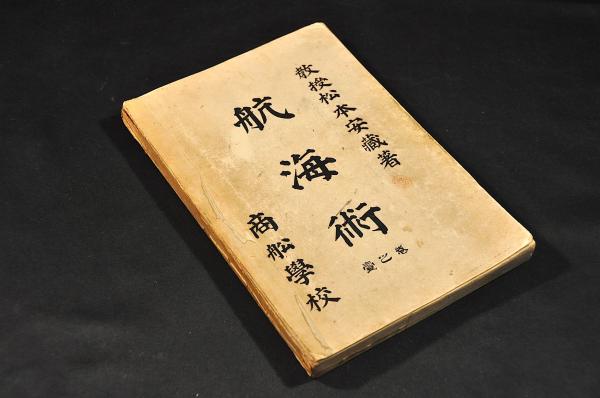 教授松本安藏著
航海術
卷之壹
商舩學校